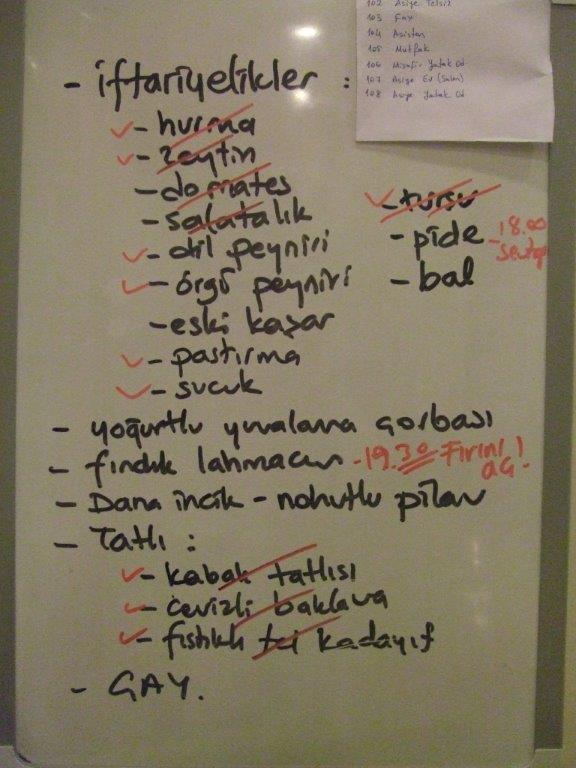 102 Asiye Telsiz
103 Fax
104 Asistan
105 Mutfak
106 Misafir Yatak Od
107 Asiye Ev (Salon)
108 Asiye Yatak Od
- iftariyelikler :
- hurma
- zeytin
- domates
- salatalık
- dil peyniri
- örgü peyniri
- eski kaşar
- pastırma
- sucuk
- turşu
- pide - 18.00
- bal
- yoğurtlu yuvalama çorbası
- fındık lahmacun - 19.30 Fırını aç!
- Dana incik - nohutlu pilav
- Tatlı :
- kabak tatlısı
- cevizli baklava
- fıstıklı tel kadayıf
- ÇAY.